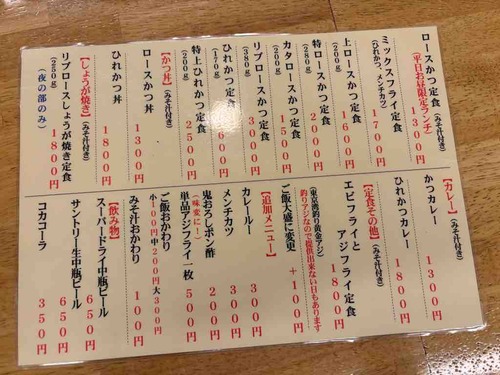 ロースかつ定食 (みそ汁付き)
(平日お昼限定ランチ) 1300円
ミックスフライ定食
(ひれかつ、メンチカツ) 1700円
上ロースかつ定食
(200g) 1600円
特ロースかつ定食
(280g) 2000円
カタロースかつ定食
(200g) 1500円
リブロースかつ定食
(380g) 3000円
ひれかつ定食
(170g) 1600円
特上ひれかつ定食
(200g) 2500円
【かつ丼】(みそ汁付き)
ロースかつ丼 1300円
ひれかつ丼 1800円
【しょうが焼き】(みそ汁付き)
リブロースしょうが焼き定食
(250g) 1800円
(夜の部のみ)
【カレー】(みそ汁付き)
かつカレー 1300円
ひれかつカレー 1800円
【定食その他】(みそ汁付き)
エビフライと
アジフライ定食 1800円
(東京湾釣り黄金アジ)
釣りアジなので提供出来ない日もあります
ご飯大盛に変更 +100円
【追加メニュー】
カレールー 300円
メンチカツ 300円
鬼おろしポン酢 200円
(味変に!)
単品アジフライ一枚 500円
ご飯おかわり
小100円中200円大300円
みそ汁おかわり 100円
【飲み物】
スーパードライ中瓶ビール 650円
サントリー生中瓶ビール 650円
コカコーラ 350円